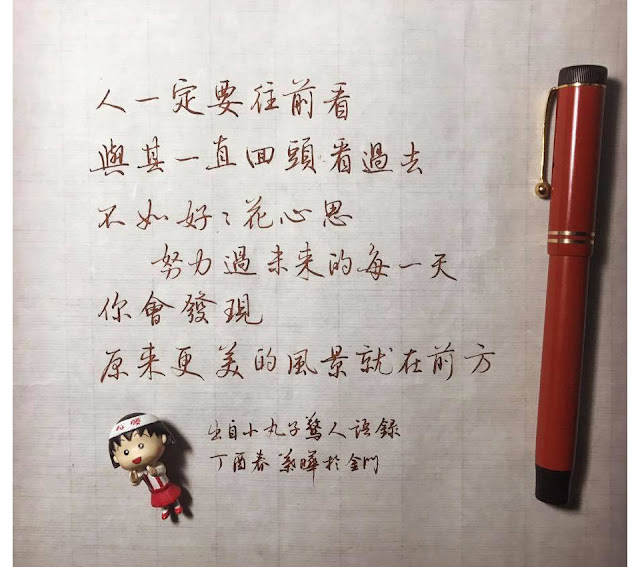 人一定要往前看
與其一直回頭看過去
不如好々花心思
努力過未來的每一天
你會發現
原來更美的風景就在前方
出自小丸子驚人語錄
丁酉春 於金門